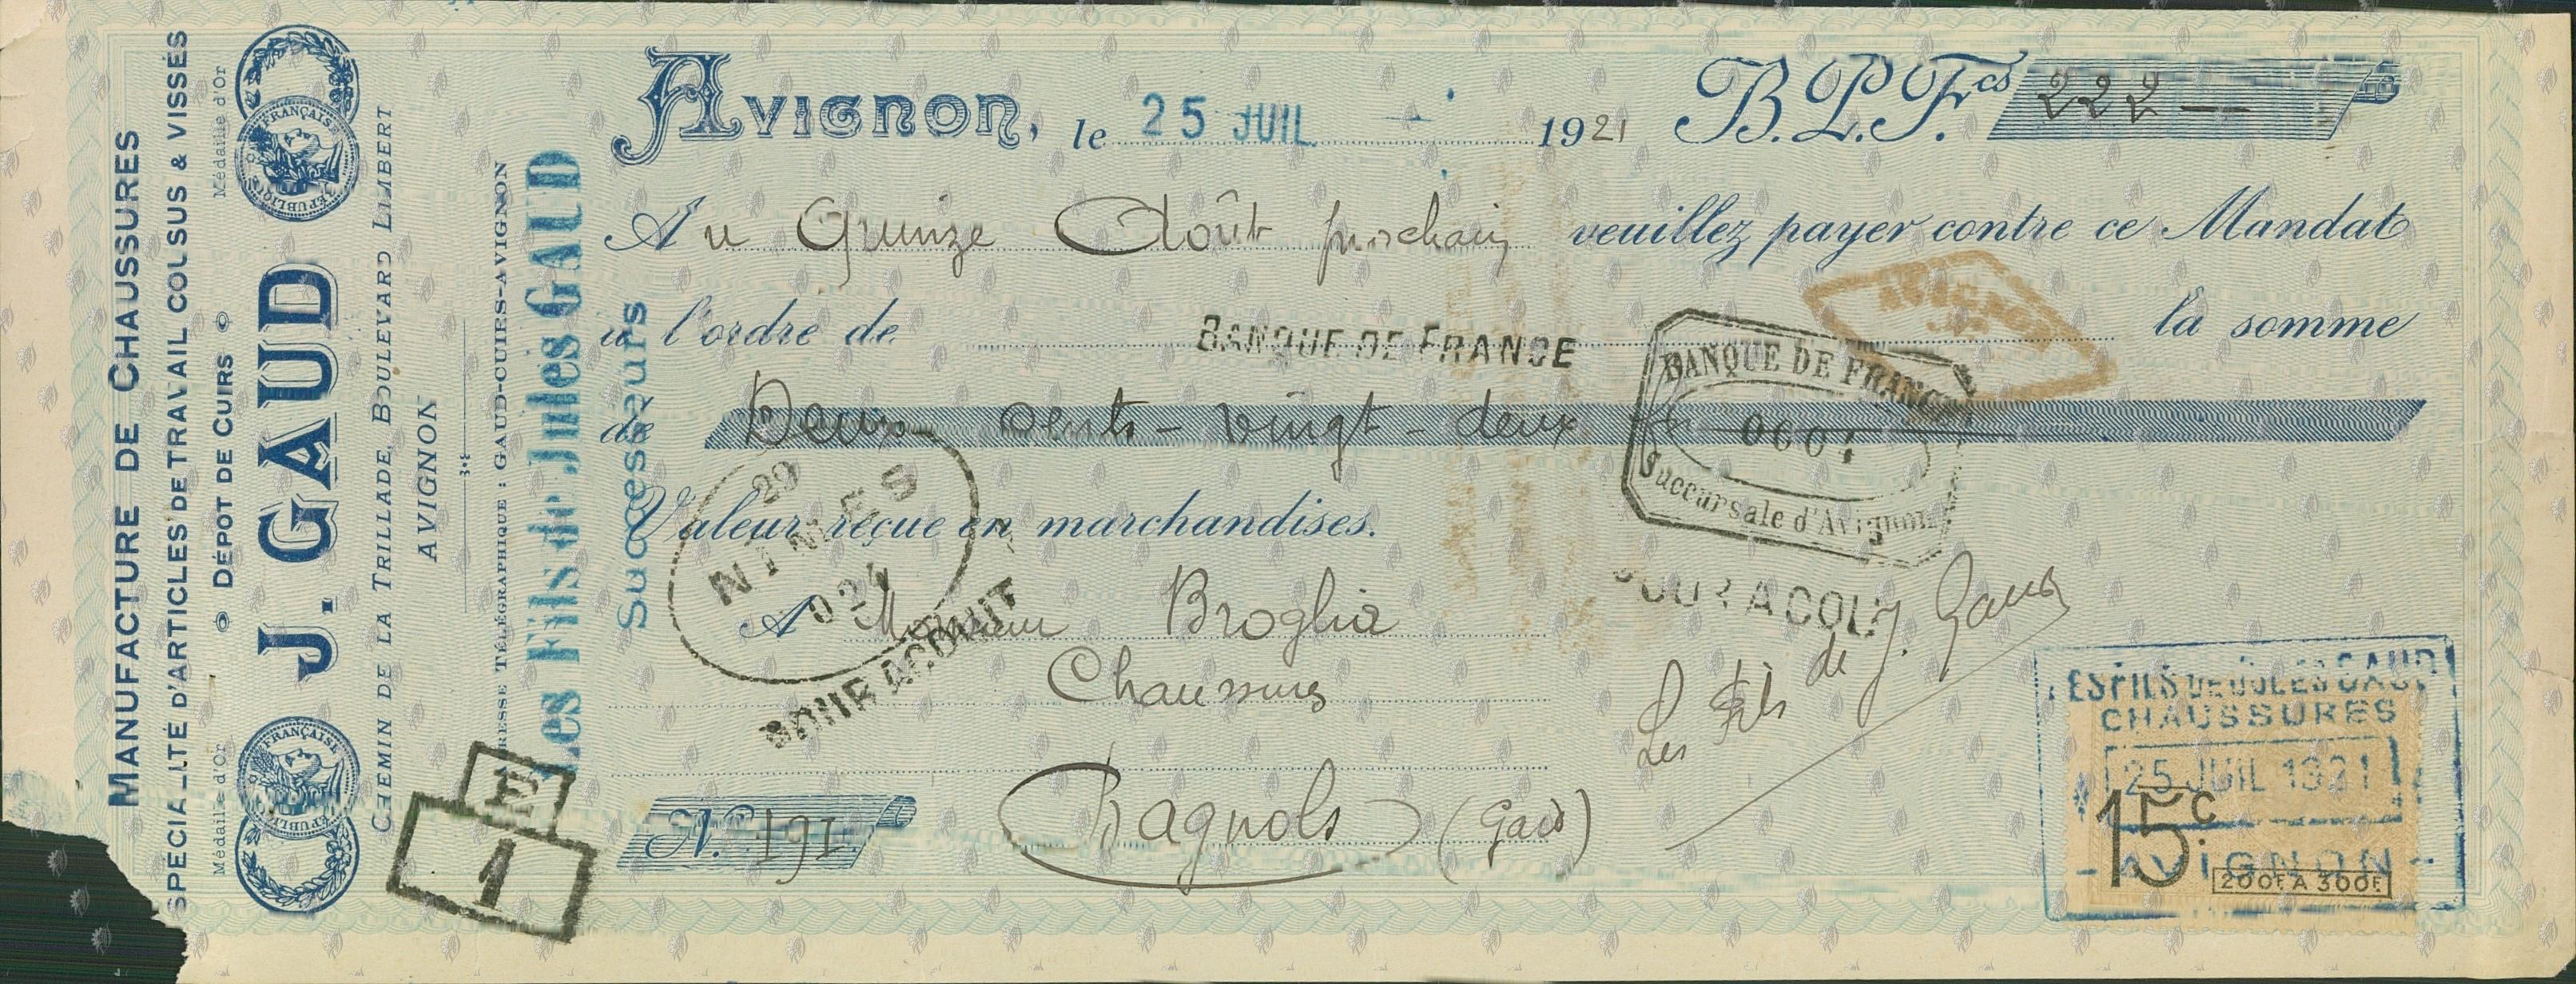 MANUFACTURE DE CHAUSSURES
SPECIALITÉ D'ARTICLES DE TRAVAIL COUSUS & VISSÉS
Médaille d'Or
DÉPOT DE CUIRS
Médaille d'Or
RÉPUBLIQUE FRANÇAISE
RÉPUBLIQUE FRANÇAISE
J. GAUD
CHEMIN DE LA TRILLADE, BOULEVARD LIMBERT
AVIGNON
RESSE TÉLÉGRAPHIQUE : GAUD-CUIRS-AVIGNON
Les Fils de Jules GAUD
Successeurs
E
1
AVIGNON, le 25 JUIL. 1921 B.P.F.cs 222 —
Au Quinze Août prochain veuillez payer contre ce Mandat
à l'ordre de BANQUE DE FRANCE la somme
de Deux cents - vingt - deux
AVIGNON
BANQUE DE FRANCE
Succursale d'Avignon
Valeur reçue en marchandises.
29
NIMES
POUR ACQUIT
A Monsieur Broglia
Chaussures
Bagnols (Gard)
N° 191
POUR ACQUIT
Les fils de J. Gaud
LES FILS DE JULES GAUD
CHAUSSURES
25 JUIL 1921
- AVIGNON -
15c
200F A 300F